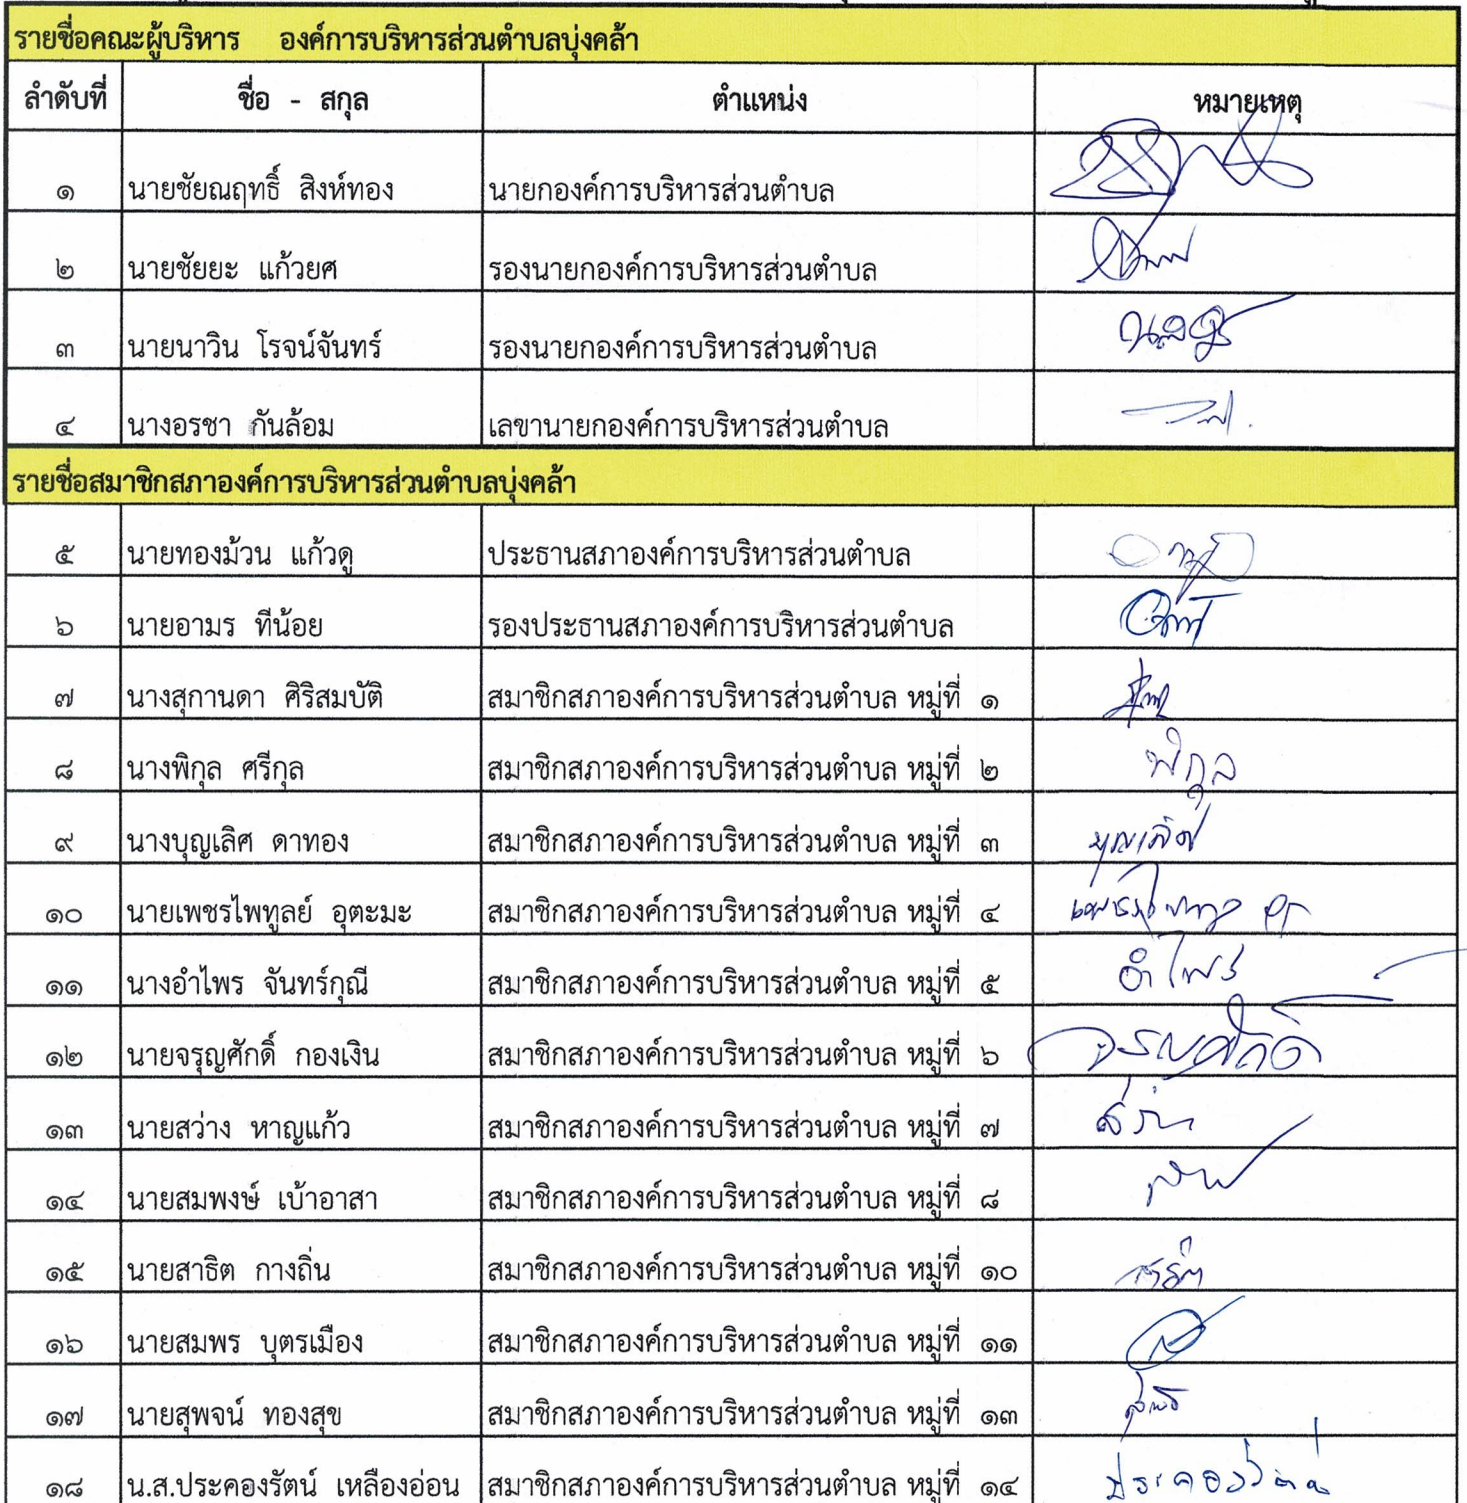 รายชื่อคณะผู้บริหาร องค์การบริหารส่วนตำบลบุ่งคล้า
ลำดับที่ ชื่อ - สกุล ตำแหน่ง หมายเหตุ
๑ นายชัยณฤทธิ์ สิงห์ทอง นายกองค์การบริหารส่วนตำบล
๒ นายชัยยะ แก้วยศ รองนายกองค์การบริหารส่วนตำบล
๓ นายนาวิน โรจน์จันทร์ รองนายกองค์การบริหารส่วนตำบล
๔ นางอรชา กันล้อม เลขานายกองค์การบริหารส่วนตำบล
รายชื่อสมาชิกสภาองค์การบริหารส่วนตำบลบุ่งคล้า
๕ นายทองม้วน แก้วดู ประธานสภาองค์การบริหารส่วนตำบล
๖ นายอามร ทีน้อย รองประธานสภาองค์การบริหารส่วนตำบล
๗ นางสุกานดา ศิริสมบัติ สมาชิกสภาองค์การบริหารส่วนตำบล หมู่ที่ ๑
๘ นางพิกุล ศรีกุล สมาชิกสภาองค์การบริหารส่วนตำบล หมู่ที่ ๒ พิกุล
๙ นางบุญเลิศ ดาทอง สมาชิกสภาองค์การบริหารส่วนตำบล หมู่ที่ ๓ บุญเลิศ
๑๐ นายเพชรไพทูลย์ อุตะมะ สมาชิกสภาองค์การบริหารส่วนตำบล หมู่ที่ ๔
๑๑ นางอำไพร จันทร์กุณี สมาชิกสภาองค์การบริหารส่วนตำบล หมู่ที่ ๕ อำไพร
๑๒ นายจรุญศักดิ์ กองเงิน สมาชิกสภาองค์การบริหารส่วนตำบล หมู่ที่ ๖ จรุญศักดิ์
๑๓ นายสว่าง หาญแก้ว สมาชิกสภาองค์การบริหารส่วนตำบล หมู่ที่ ๗
๑๔ นายสมพงษ์ เบ้าอาสา สมาชิกสภาองค์การบริหารส่วนตำบล หมู่ที่ ๘
๑๕ นายสาธิต กางถิ่น สมาชิกสภาองค์การบริหารส่วนตำบล หมู่ที่ ๑๐ สาธิต
๑๖ นายสมพร บุตรเมือง สมาชิกสภาองค์การบริหารส่วนตำบล หมู่ที่ ๑๑
๑๗ นายสุพจน์ ทองสุข สมาชิกสภาองค์การบริหารส่วนตำบล หมู่ที่ ๑๓
๑๘ น.ส.ประคองรัตน์ เหลืองอ่อน สมาชิกสภาองค์การบริหารส่วนตำบล หมู่ที่ ๑๔ ประคองรัตน์